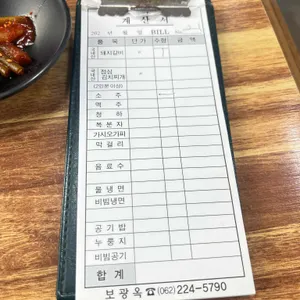 계 산 서
년 월 일 BILL No.
품 목 단 가 수량 금 액
국내산 돼지갈비
국내산 점심 김치찌개
(2인분이상)
소 주
맥 주
청 하
복 분 자
가시오가피
막 걸 리
음 료 수
물 냉 면
비빔냉면
공 기 밥
누 룽 지
비빔공기
합 계
보 광 옥 ☎(062)224-5790